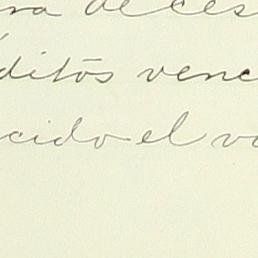 ra de ces
ditos venc
cido el va